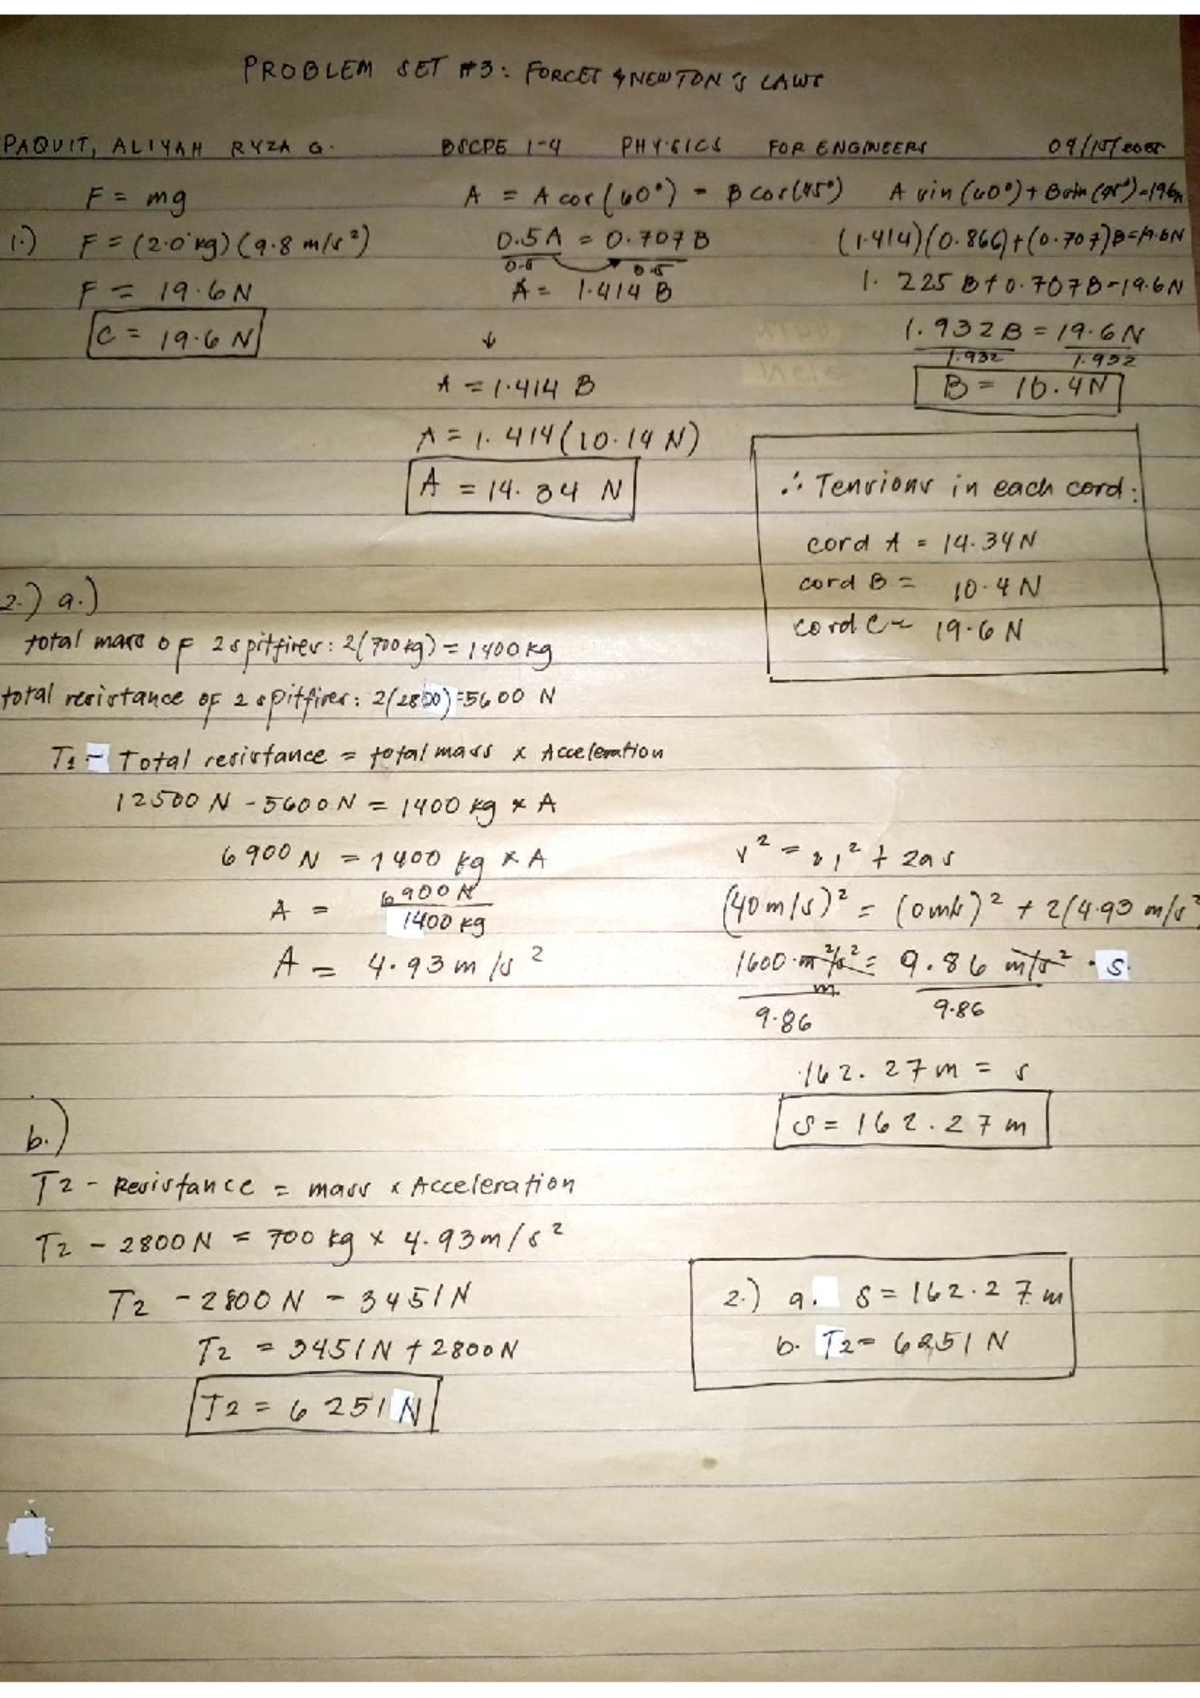 PROBLEM SET #3: FORCES & NEWTON'S LAWS
PAQUIT, ALIYAH RYZA G. BSCPE 1-4 PHYSICS FOR ENGINEERS
F = mg
1.) F = (2.0 kg) (9.8 m/s²)
F = 19.6 N
C = 19.6 N
A = A cos (60°) - B cos (45°)
0.5A = 0.707 B
0.5 0.5
A = 1.414 B
↓
A = 1.414 B
A = 1.414 (10.14 N)
A = 14.34 N
A sin (60°) + B sin (45°) = 19.6N
(1.414)(0.866) + (0.707)B = 19.6N
1.225 B + 0.707B = 19.6N
1.932B = 19.6 N
1.932 1.932
B = 10.4N
∴ Tensions in each cord:
cord A = 14.34 N
cord B = 10.4 N
cord C = 19.6 N
2.) a.)
total mass of 2 spitfires: 2(700kg) = 1400 kg
total resistance of 2 spitfires: 2(2800) = 5600 N
T1 - Total resistance = total mass x Acceleration
12500 N - 5600 N = 1400 kg x A
6900 N = 1400 kg x A
A = 6900 N
1400 kg
A = 4.93 m/s²
(40 m/s)² = (0 m/s)² + 2(4.93 m/s²
1600 m²/s² = 9.86 m/s² · s
m
9.86 9.86
162.27 m = s
s = 162.27 m
b.)
T2 - Resistance = mass x Acceleration
T2 - 2800 N = 700 kg x 4.93 m/s²
T2 - 2800 N - 3451 N
T2 = 3451 N + 2800 N
T2 = 6251 N
2.) a. s = 162.27 m
b. T2 = 6251 N